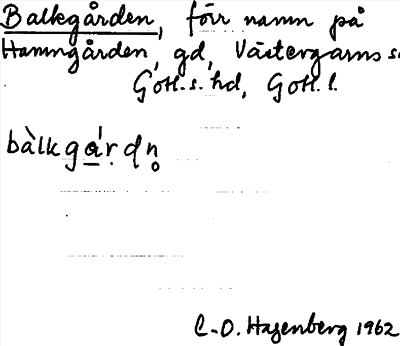 Balkgården, förr namn på
Hamngården, gd, Västergarns s.
Gotl. s. hd, Gotl. l.
bàlkgá̱ṛdn̥
C-O. Hagenberg 1962